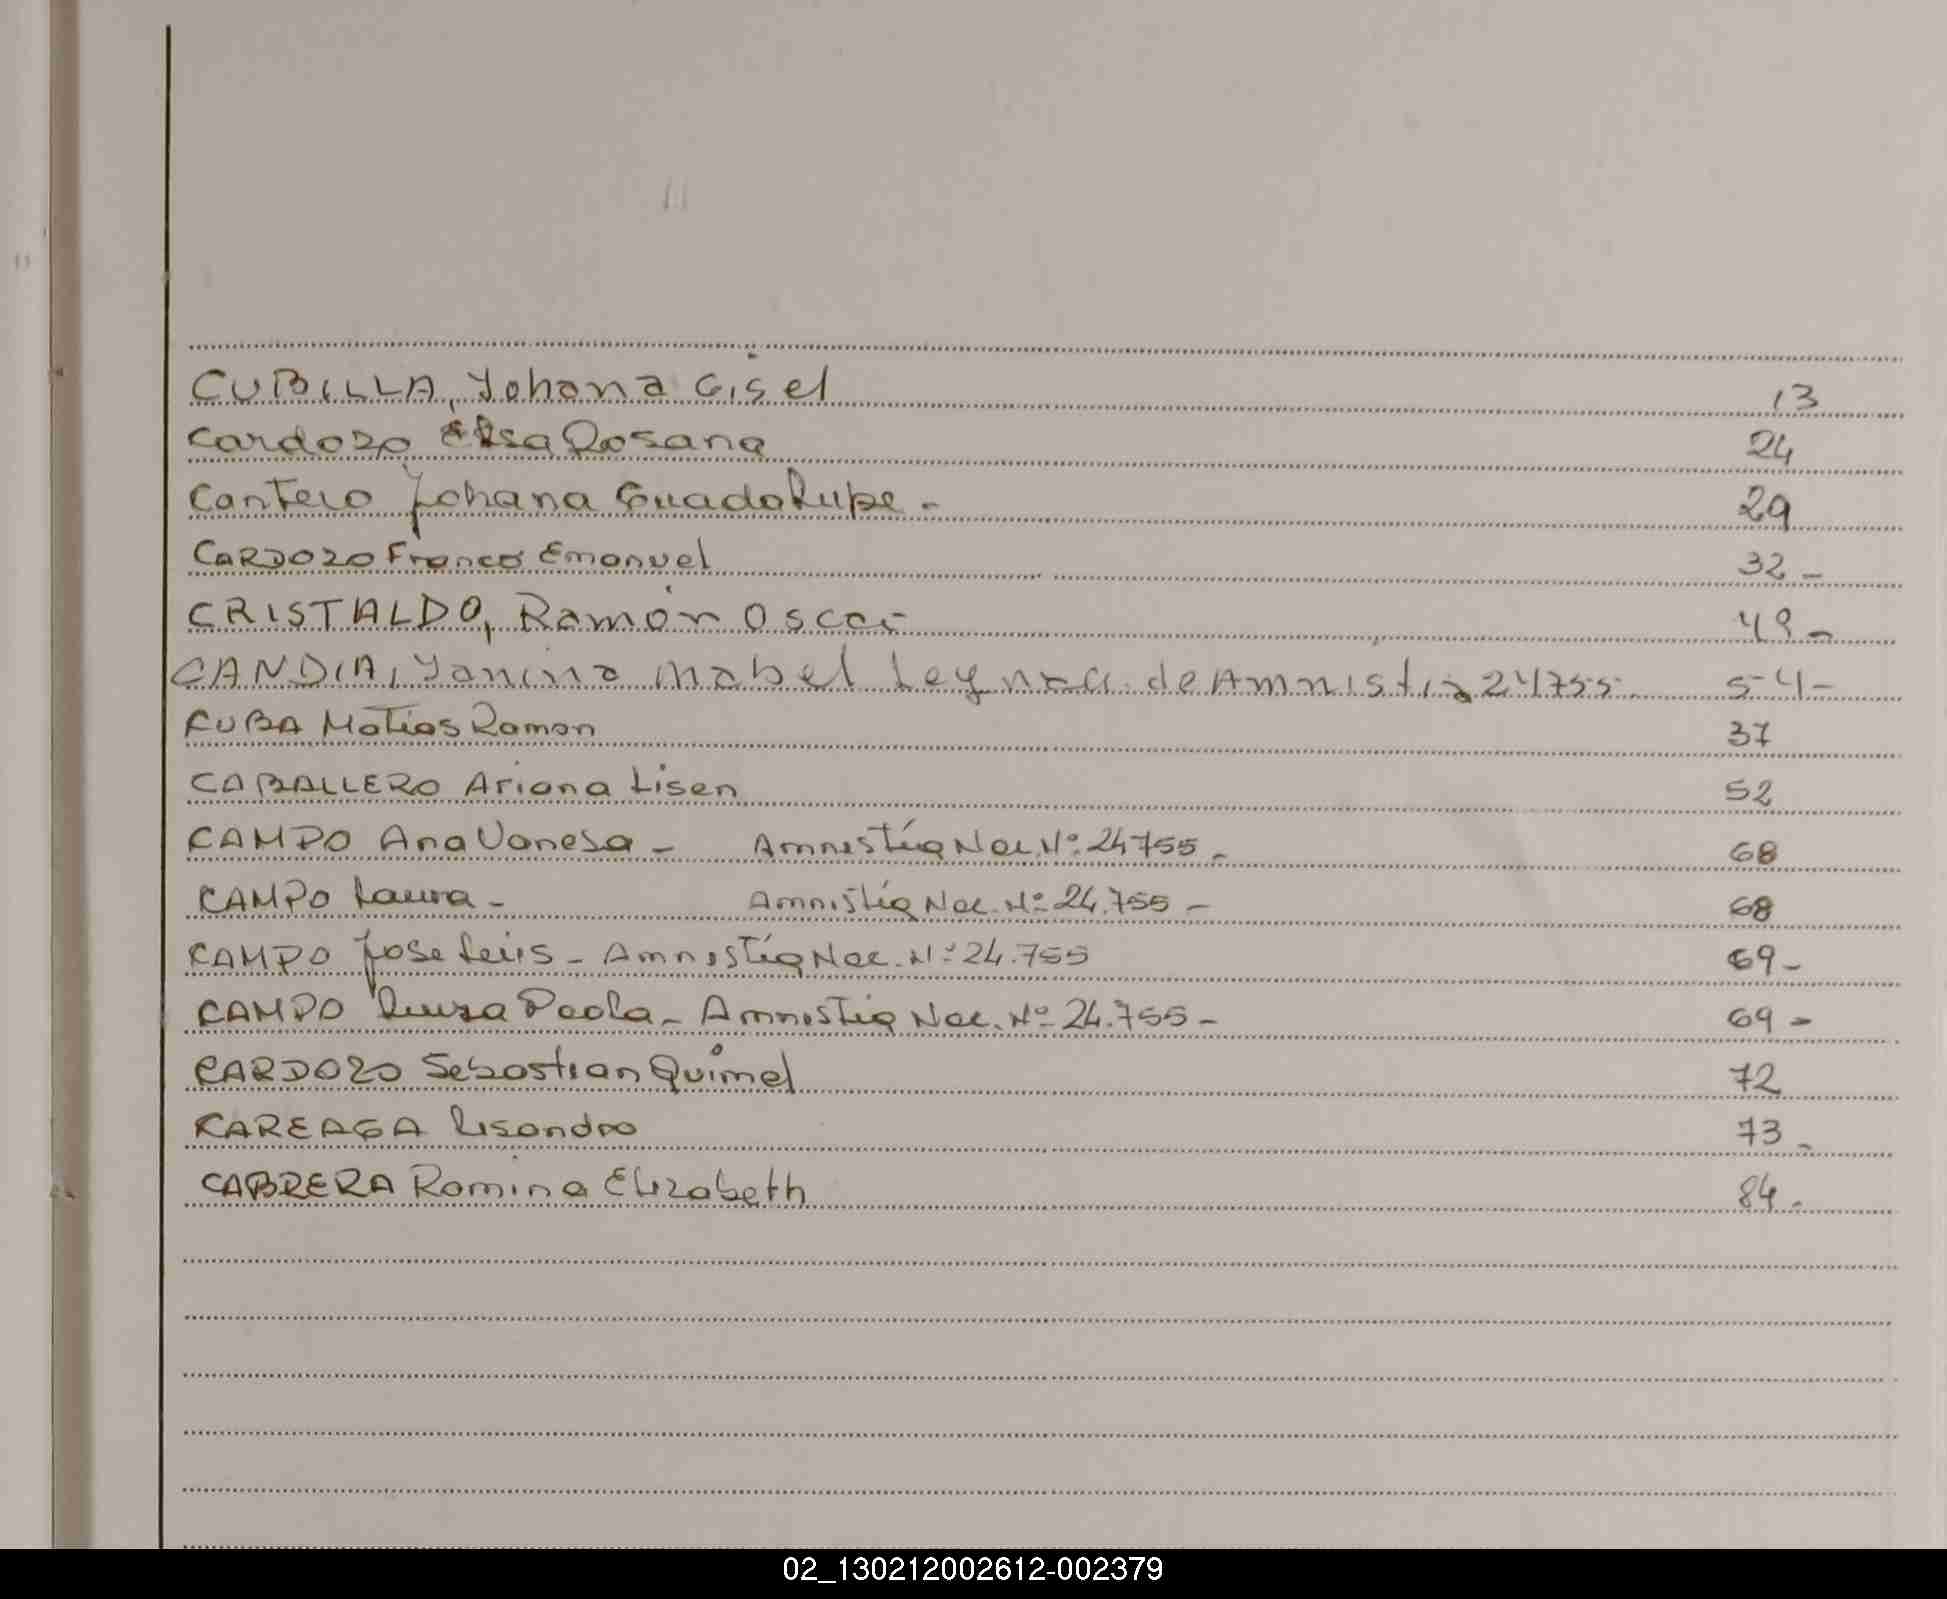 CUBILLA, Yohana Gisel 13
Cardozo Elsa Rosana 24
Cantero Johana Guadalupe - 29
CARDOZO Franco Emanuel 32 -
CRISTALDO, Ramón Oscar 49 -
CANDIA, Yanina Mabel Ley nac. de Amnistia 24755 54 -
CUBA Matias Ramon 37
CABALLERO Ariana Lisen 52
CAMPO Ana Vanesa - Amnistía Nac. Nº 24755 - 68
CAMPO Laura - Amnistía Nac. Nº 24.755 - 68
CAMPO Jose Luis - Amnistía Nac. Nº 24.755 69 -
CAMPO Luisa Paola - Amnistia Nac. Nº 24.755 - 69 -
CARDOZO Sebastian Quimel 72
CAREAGA Lisandro 73 -
CABRERA Romina Elizabeth 84 -
02_130212002612-002379